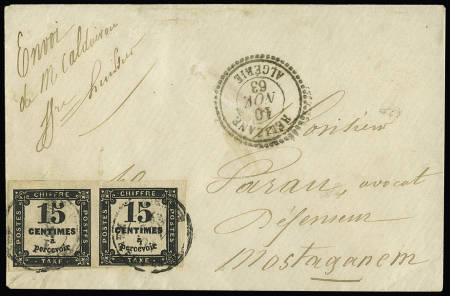 Envoi
de Mr
RELIZANE
10
NOV
63
ALGÉRIE
Monsieur
Paran, avocat
Défenseur
Mostaganem
CHIFFRE
POSTES
15
CENTIMES
à
percevoir
POSTES
TAXE
CHIFFRE
POSTES
15
CENTIMES
à
percevoir
POSTES
TAXE